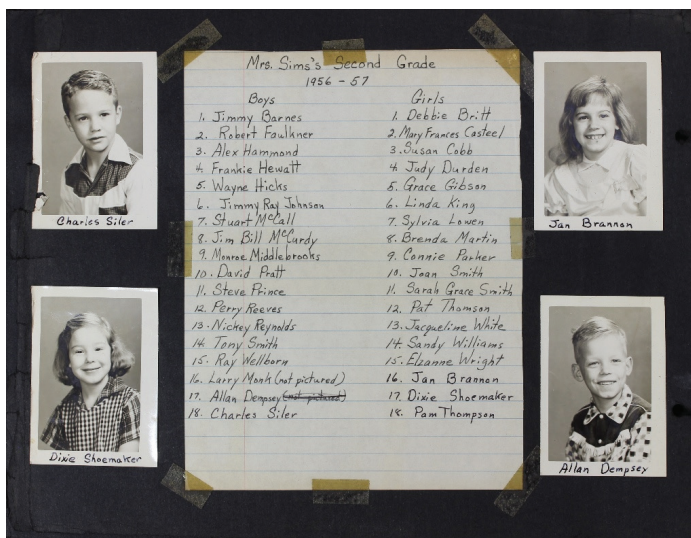 Mrs. Sims's Second Grade
1956 - 57
Boys
1. Jimmy Barnes
2. Robert Faulkner
3. Alex Hammond
4. Frankie Hewatt
5. Wayne Hicks
6. Jimmy Ray Johnson
7. Stuart McCall
8. Jim Bill McCurdy
9. Monroe Middlebrooks
10. David Pratt
11. Steve Prince
12. Perry Reeves
13. Nickey Reynolds
14. Tony Smith
15. Ray Wellborn
16. Larry Monk (not pictured)
17. Allan Dempsey (not pictured)
18. Charles Siler
Girls
1. Debbie Britt
2. Mary Frances Casteel
3. Susan Cobb
4. Judy Durden
5. Grace Gibson
6. Linda King
7. Sylvia Lowen
8. Brenda Martin
9. Connie Parker
10. Joan Smith
11. Sarah Grace Smith
12. Pat Thomson
13. Jacqueline White
14. Sandy Williams
15. Elzanne Wright
16. Jan Brannon
17. Dixie Shoemaker
18. Pam Thompson
Charles Siler
Jan Brannon
Dixie Shoemaker
Allan Dempsey